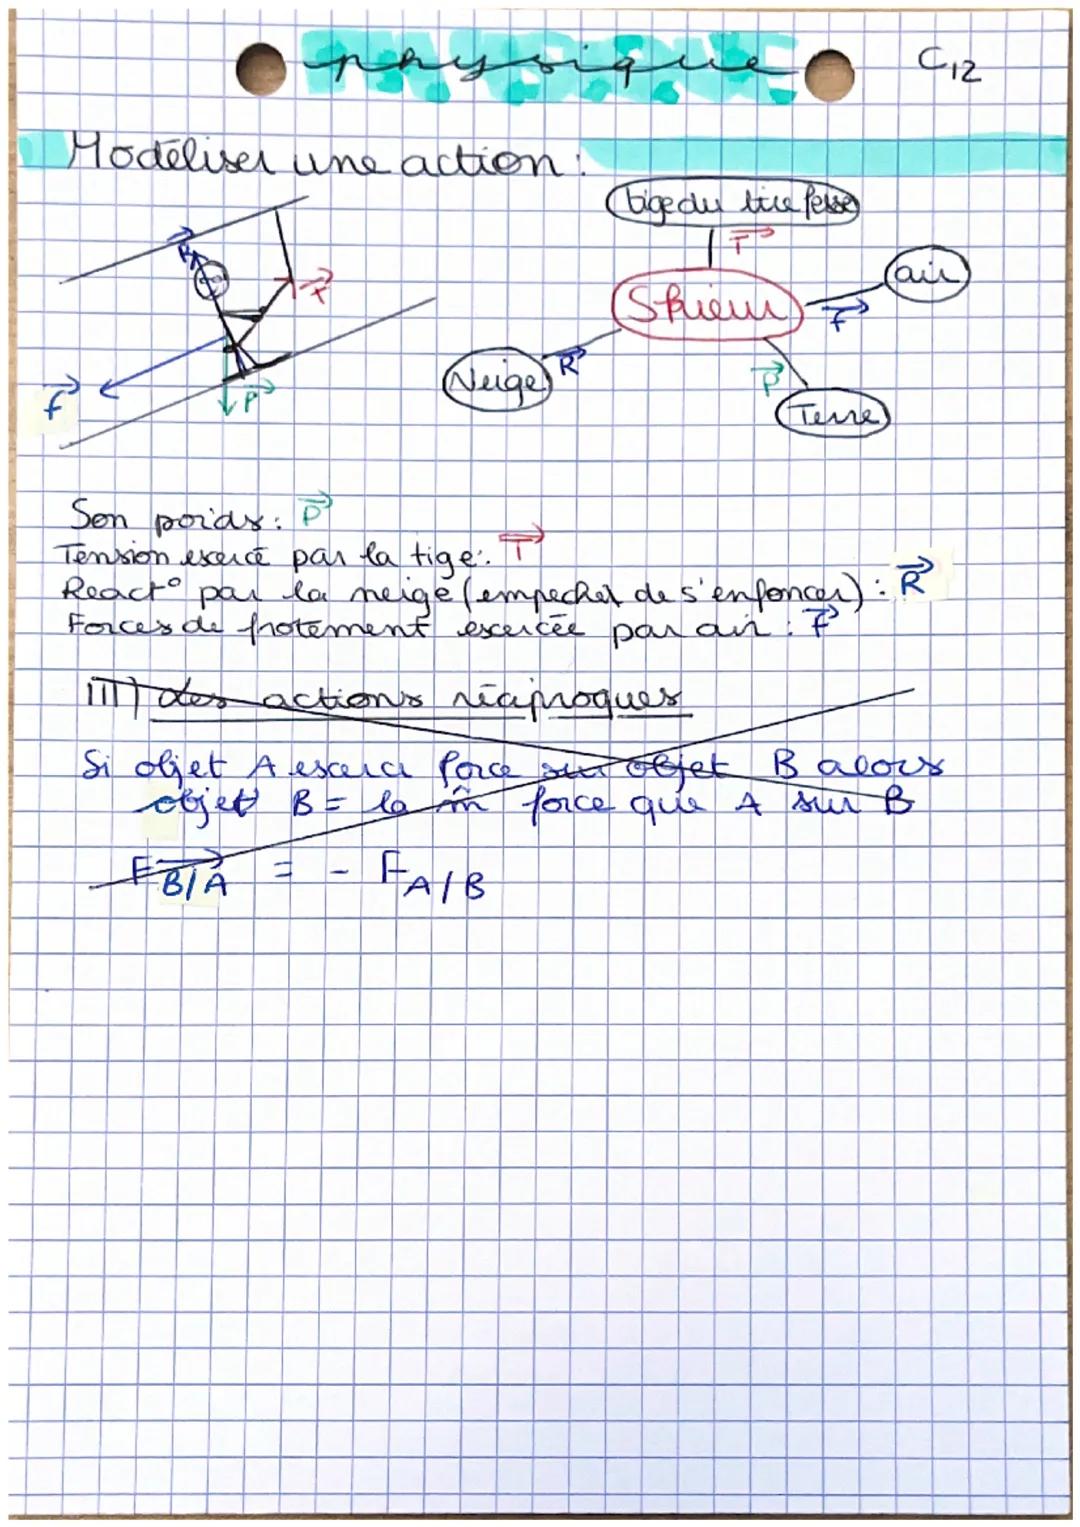 physique
C12
Modéliser une action :
tige du tire fesse
T
air
Skieur
f
R
Neige
P
Terre
R
T
f
P
Son poids : P
Tension exercé par la tige : T
React° par la neige (empecher de s'enfoncer) : R
Forces de frotement exercée par air : f
III) des actions réciproques
Si objet A exerce force sur objet B alors
objet B = la m̂ force que A sur B
F B/A = - F A/B